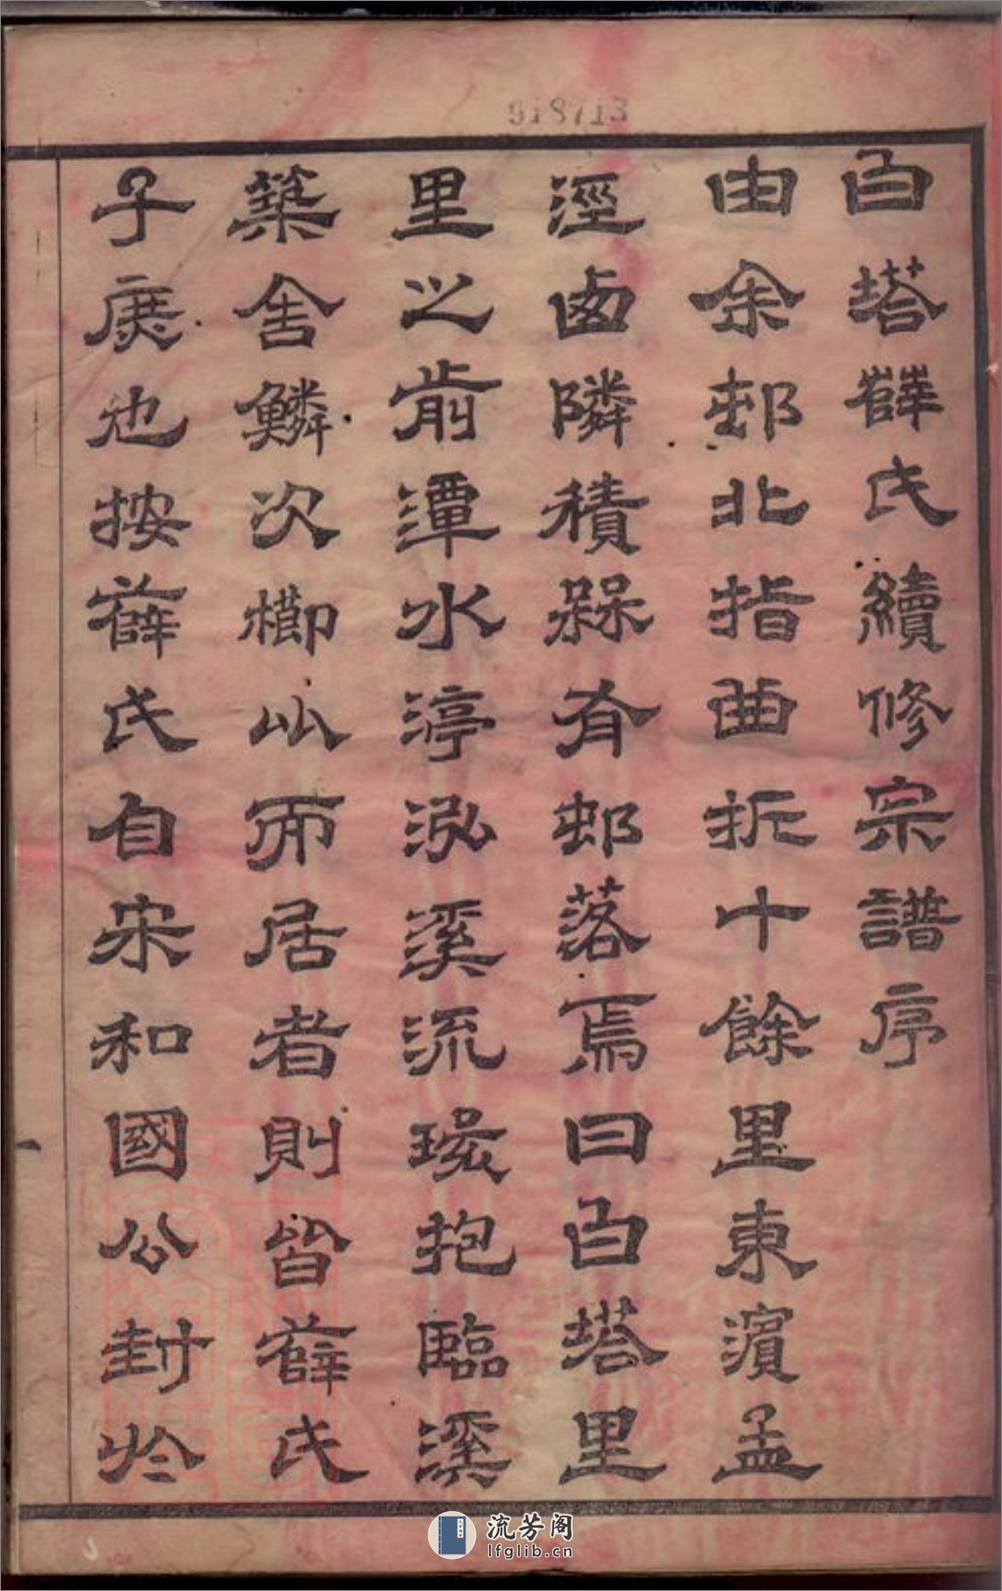 白塔薛氏續修宗譜序
由余邨北指曲折十餘里東濱孟
涇鹵隣積槑有邨落焉曰白塔里
里之前潭水渟泓溪流環抱臨溪
築舍鱗次櫛比而居者則皆薛氏
子庚也按薛氏自宋和國公封於
流芳阁
lfglib.cn